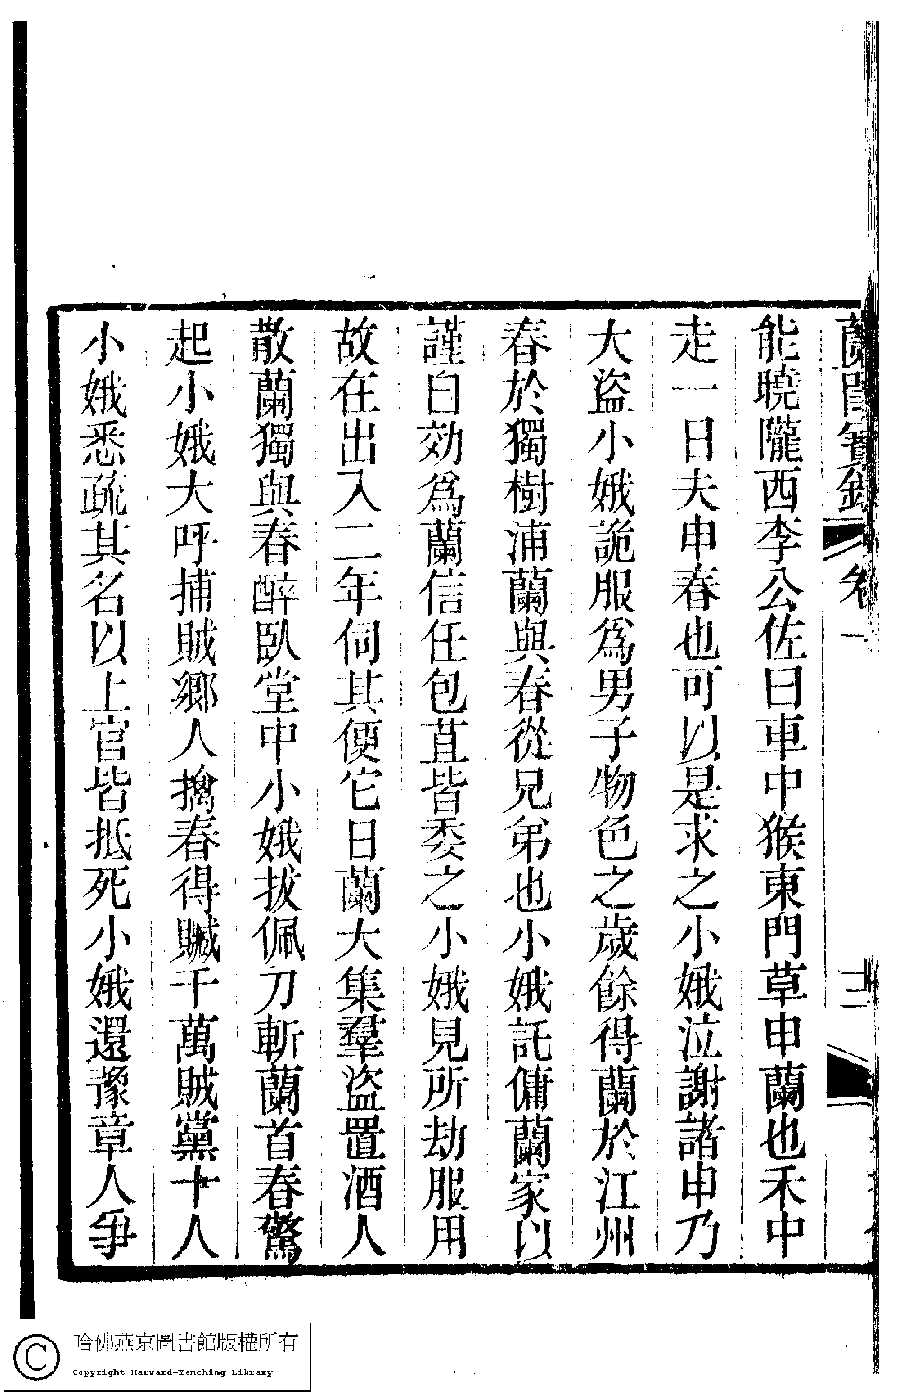 蘭閨寶錄 卷一 十二
能曉隴西李公佐曰車中猴東門草申蘭也禾中
走一日夫申春也可以是求之小娥泣謝諸申乃
大盜小娥詭服爲男子物色之歲餘得蘭於江州
春於獨樹浦蘭與春從兄弟也小娥託傭蘭家以
謹自効爲蘭信任包苴皆委之小娥見所劫服用
故在出入二年伺其便它日蘭大集羣盜置酒人
散蘭獨與春醉臥堂中小娥拔佩刀斬蘭首春驚
起小娥大呼捕賊鄉人擒春得贓千萬賊黨十人
小娥悉疏其名以上官皆抵死小娥還豫章人爭
哈佛燕京圖書館版權所有
Copyright Harvard-Yenching Library